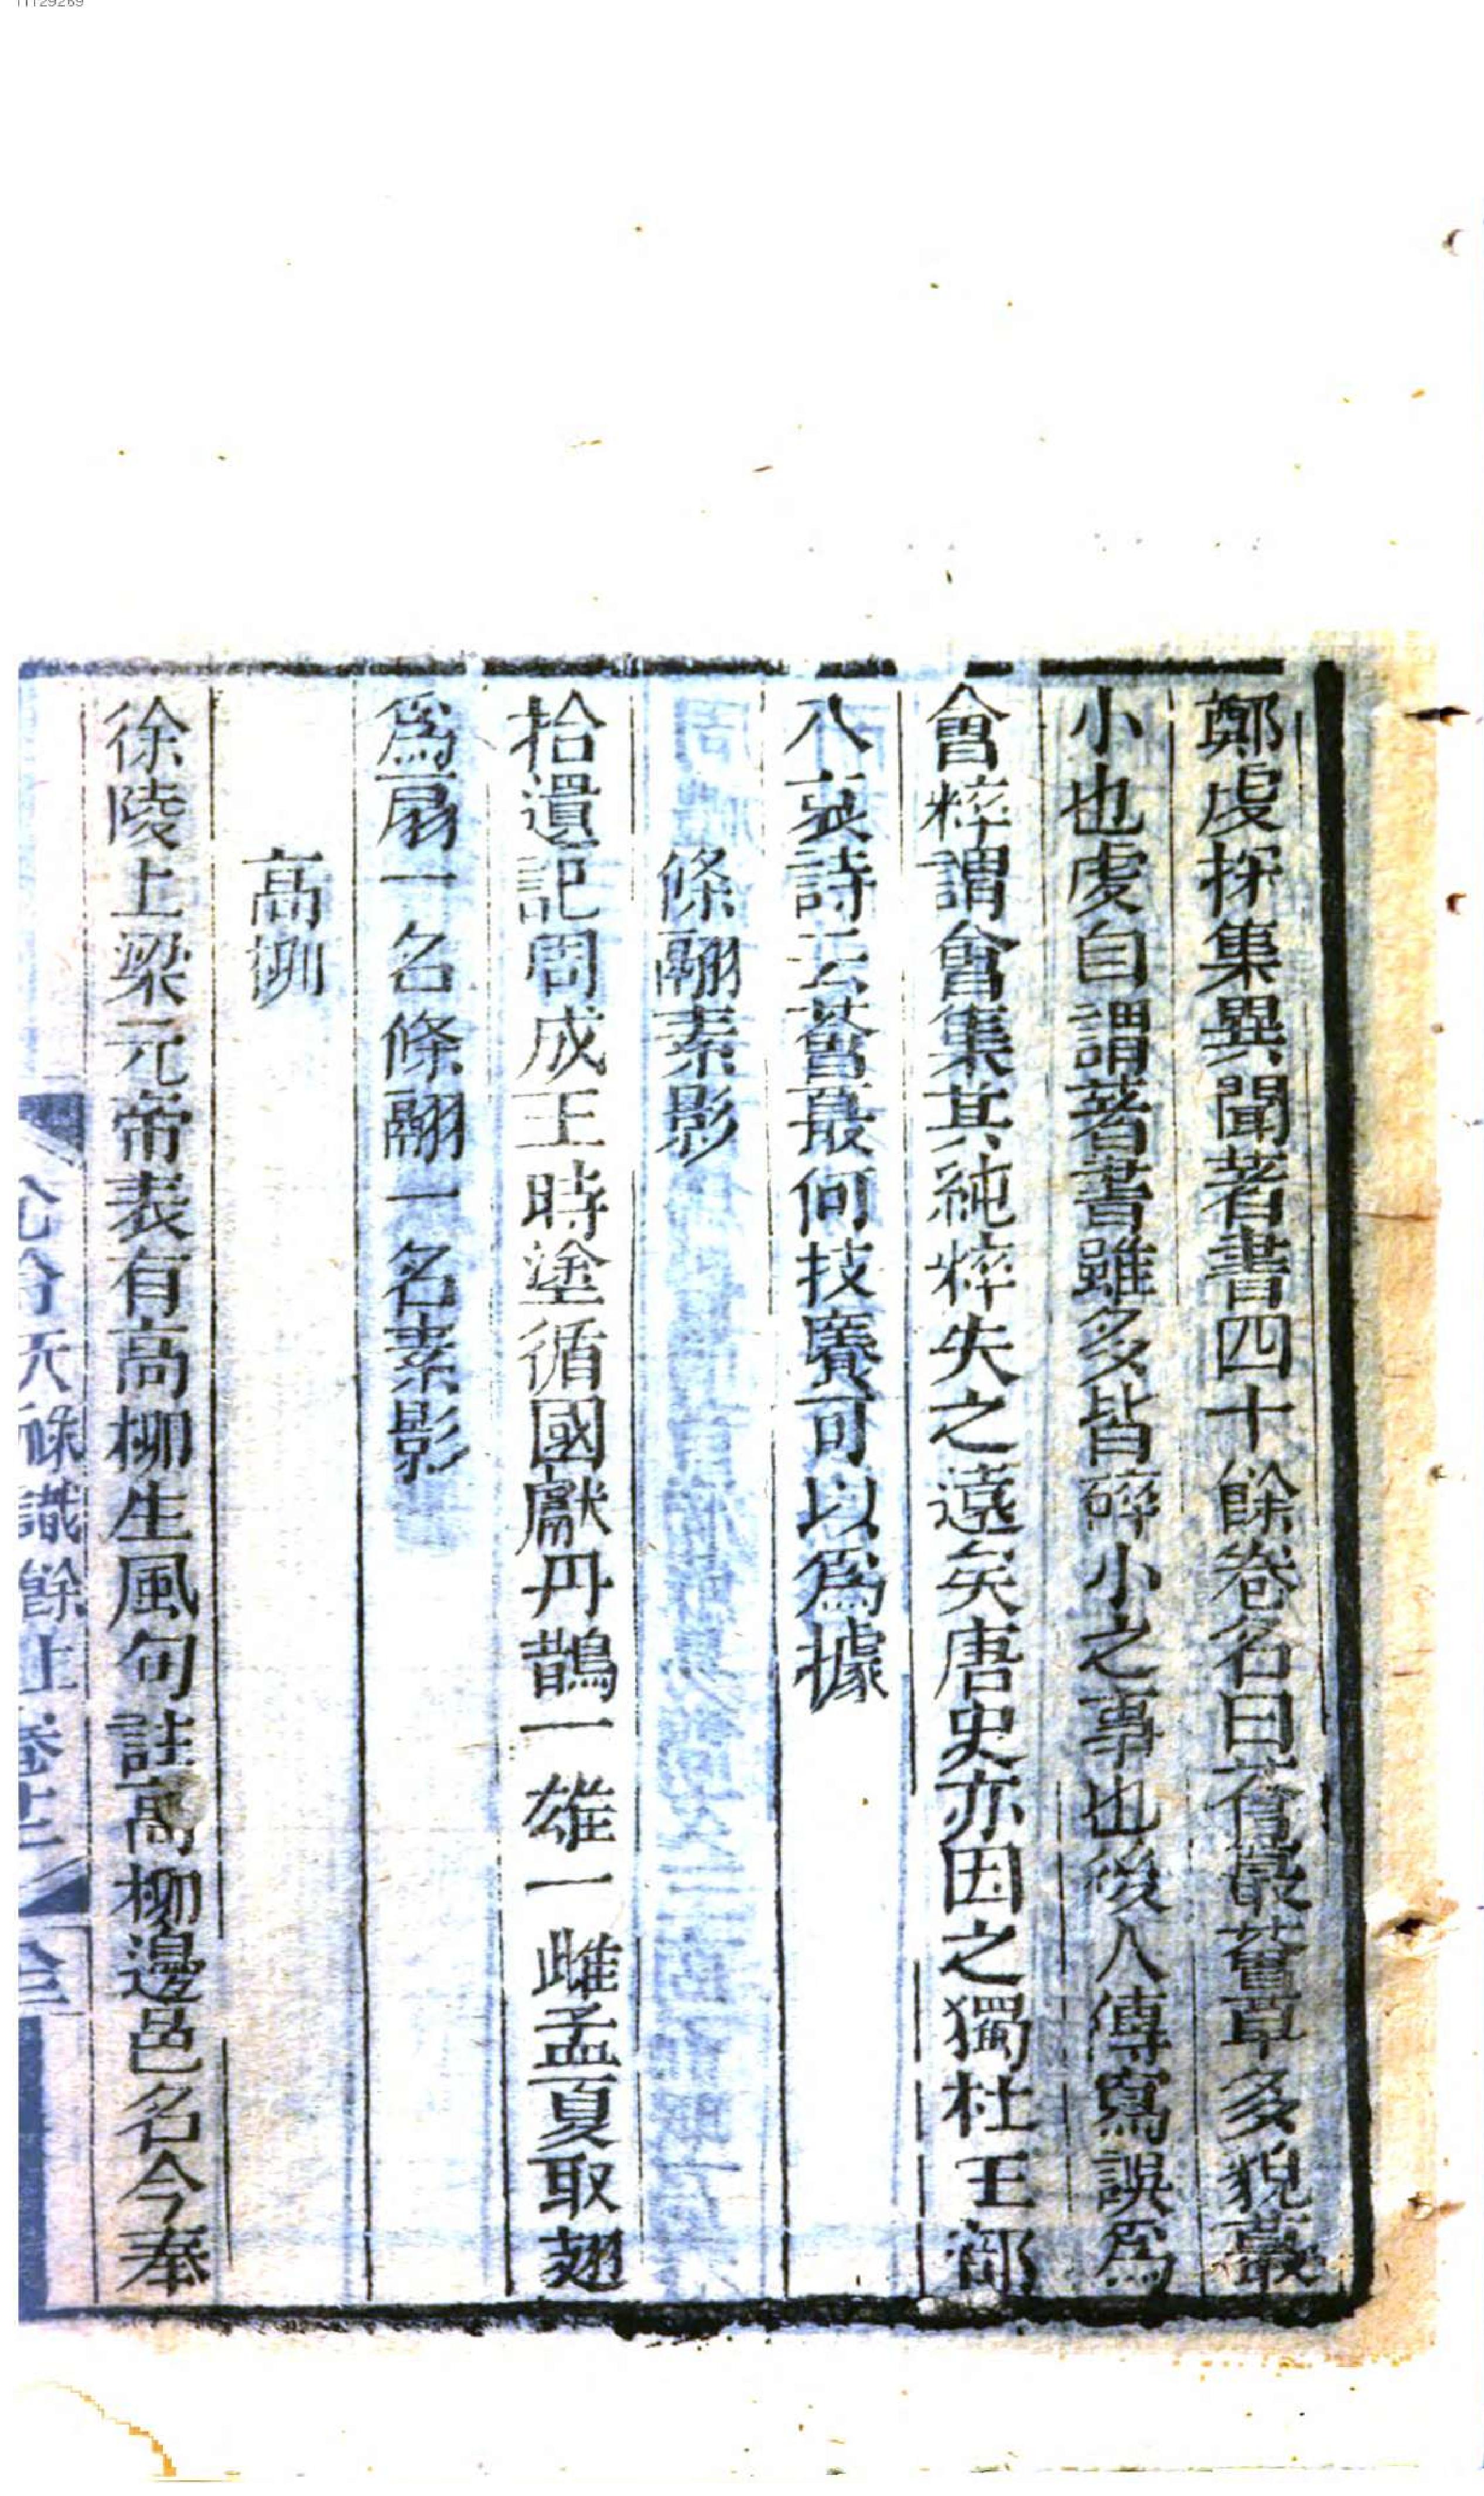 鄭虔採集異聞著書四十餘卷名曰薈蕞薈草多貌蕞
小也虔自謂著書雖多皆碎小之事也後人傳寫誤爲
會粹謂會集其純粹失之遠矣唐史亦因之獨杜工部
八哀詩云薈蕞何技癢可以爲據
條翮素影
拾遺記周成王時塗循國獻丹鵲一雄一雌孟夏取翅
爲扇一名條翮一名素影
高柳
徐陵上梁元帝表有高柳生風句註高柳邊邑名今奉
天祿識餘